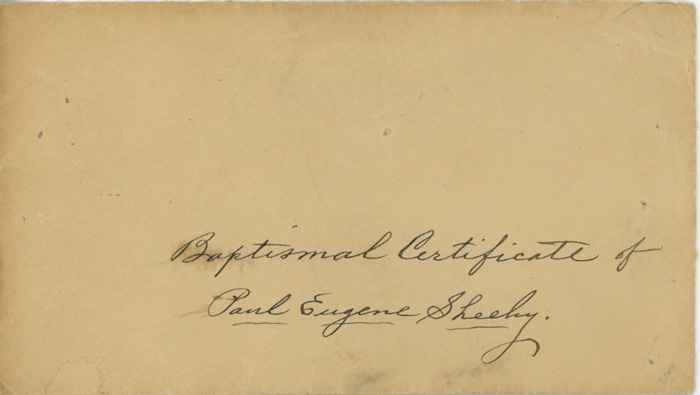 Baptismal Certificate of
Paul Eugene Sheehy.